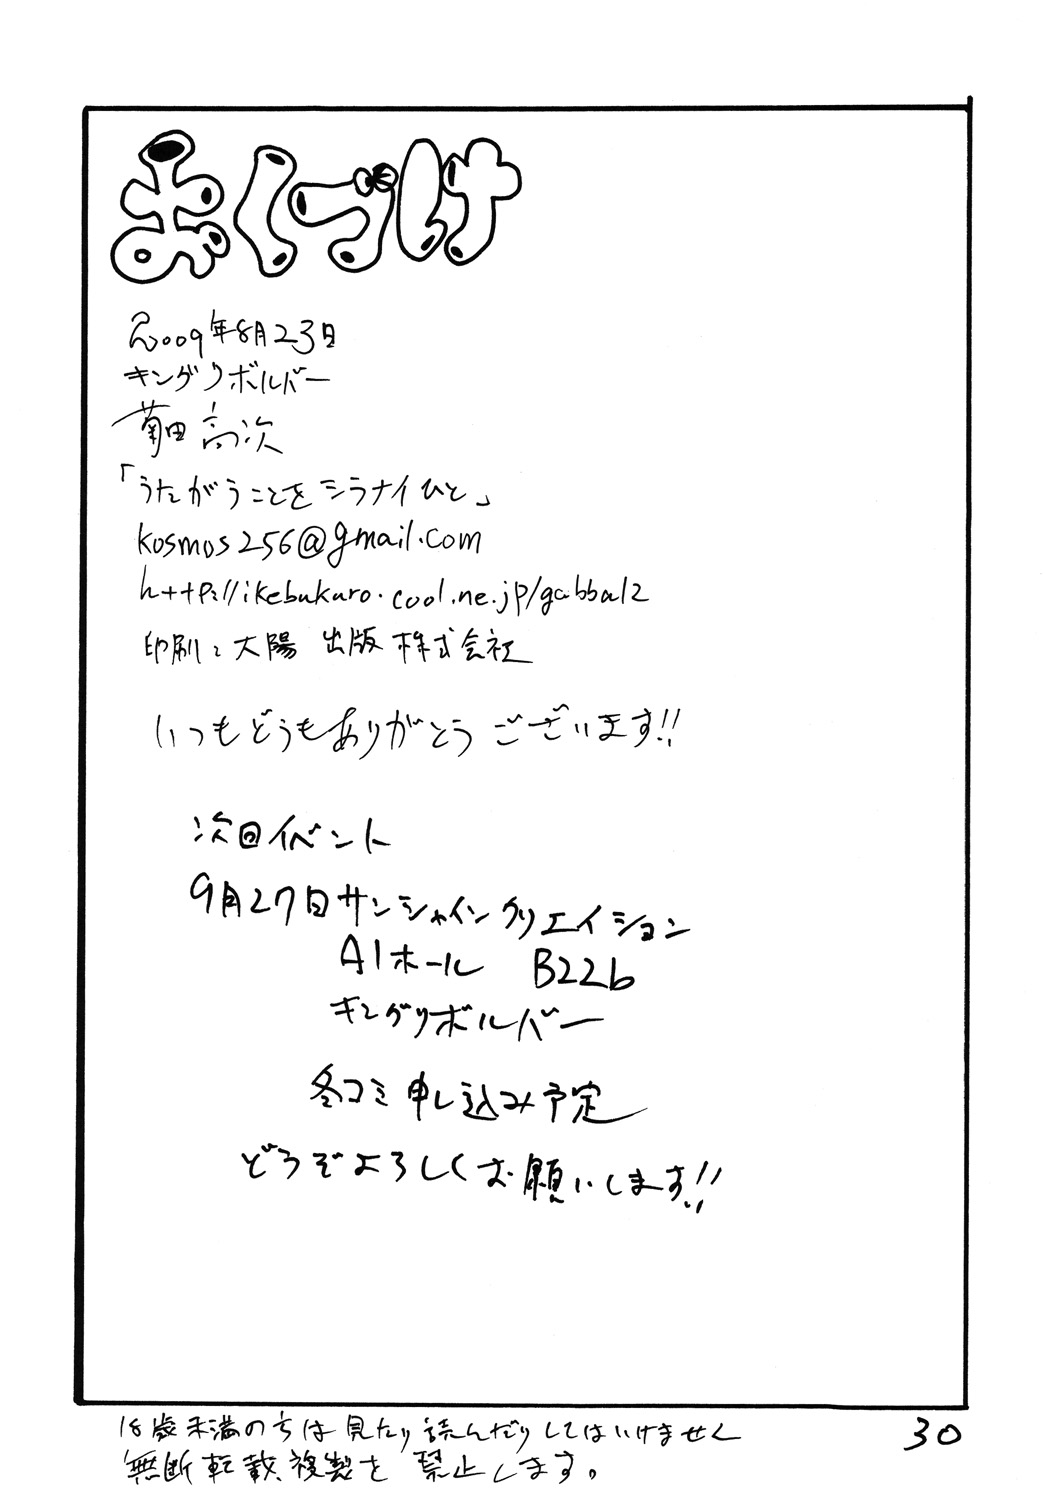 おくづけ
2009年8月23日
キングリボルバー
菊田高次
「うたがうことをシラナイひと」
kosmos256@gmail.com
http://ikebukuro.cool.ne.jp/gabba12
印刷：大陽出版株式会社
いつもどうもありがとうございます!!
次回イベント
9月27日サンシャインクリエイション
A1ホール B22b
キングリボルバー
冬コミ申し込み予定
どうぞよろしくお願いします!!
18歳未満の方は見たり読んだりしてはいけません
無断転載、複製を禁止します。
30